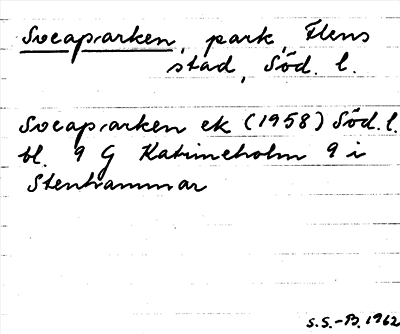 Sveaparken, park, Flens
stad, Söd. l.
Sveaparken ek (1958) Söd. l.
bl. 9 G Katrineholm 9 i
Stenhammar
S.S.-B. 1962